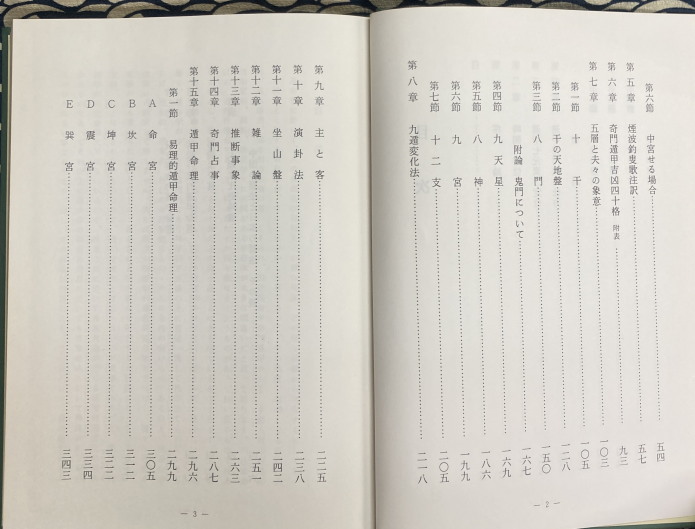 第六節 中宮せる場合 五四
第五章 煙波釣叟歌注訳 五七
第六章 奇門遁甲吉凶四十格 附表 九三
第七章 五層と夫々の象意 一〇三
第一節 十干 一〇五
第二節 干の天地盤 一二八
第三節 八門 一五〇
附論 鬼門について 一六七
第四節 九天星 一六九
第五節 八神 一八六
第六節 九宮 一九九
第七節 十二支 二〇五
第八章 九遁変化法 二一八
— 2 —
第九章 主と客 二二五
第十章 演卦法 二三八
第十一章 坐山盤 二四二
第十二章 雑論 二五一
第十三章 推断事象 二六三
第十四章 奇門占事 二八七
第十五章 遁甲命理 二九六
第一節 易理的遁甲命理 二九九
A 命宮 三〇五
B 坎宮 三一二
C 坤宮 三二二
D 震宮 三三四
E 巽宮 三四三
— 3 —